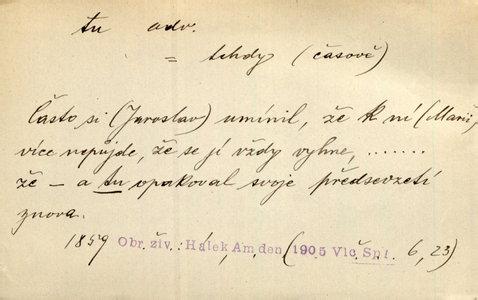 tu adv.
= tehdy (časově)
Často si (Jaroslav) umínil, že k ní (Marii)
více nepůjde, že se jí vždy vyhne, .......
že – a tu opakoval svoje předsevzetí
znova.
1859 Obr. živ. : Hálek Am den (1905 Vlč. Spi. 6, 23)